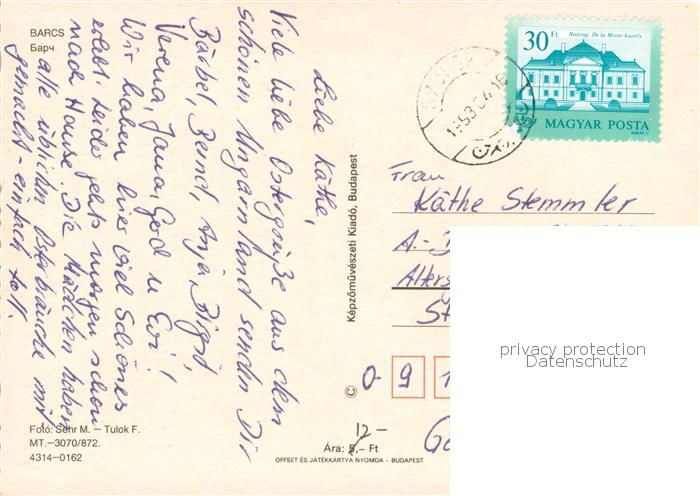 BARCS
Барч
Liebe Käthe,
Viele liebe Ostergrüße aus dem
schönen Ungarnland senden Dir
Bärbel, Bernd, Anja, Birgit,
Verena, Jana, Gerd u. Evi!
Wir haben hier viel Schönes
erlebt. Leider geht's morgen schon
nach Hause. Die Mädchen haben
alle üblichen Osterbräuche mit
gemacht - einfach toll.
Fotó: Sehr M. – Tulok F.
MT.–3070/872.
4314–0162
Képzőművészeti Kiadó, Budapest
©
12-
Ára: 5,- Ft
OFFSET ÉS JÁTÉKKÁRTYA NYOMDA – BUDAPEST
30 Ft
Nosztagi. De la Motte-kastély
MAGYAR POSTA
1993.04.16
Frau
Käthe Stemmler
A.-
Alters
St
0-91
privacy protection
Datenschutz